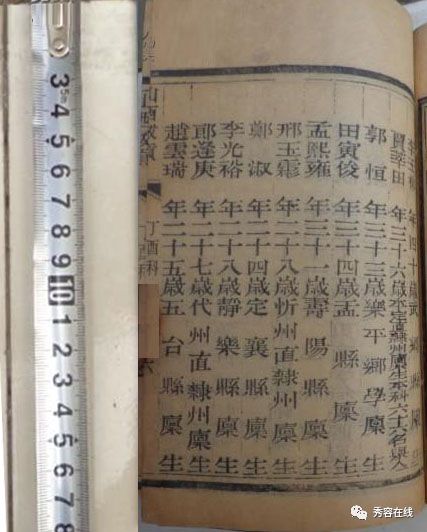 年四十歲武鄉縣
田年三十六歲永寧直隸州廩生本科六十六名舉人
郭恒年三十三歲樂平鄉學廩生
田寅俊年三十四歲盂縣廩生
孟熙雍年三十一歲壽陽縣廩生
邢玉年二十八歲忻州直隸州廩生
鄭淑年二十四歲定襄縣廩生
李光裕年二十八歲靜樂縣廩生
逢庚年二十七歲代州直隸州廩生
趙雲瑞年二十五歲五台縣廩生
丁酉科
5m
3 4 5 6 7 8 9 10 1 2 3 4 5 6 7 8
秀容在线